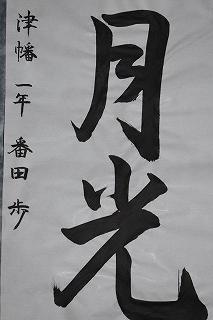 月光
津幡 一年 番田 歩